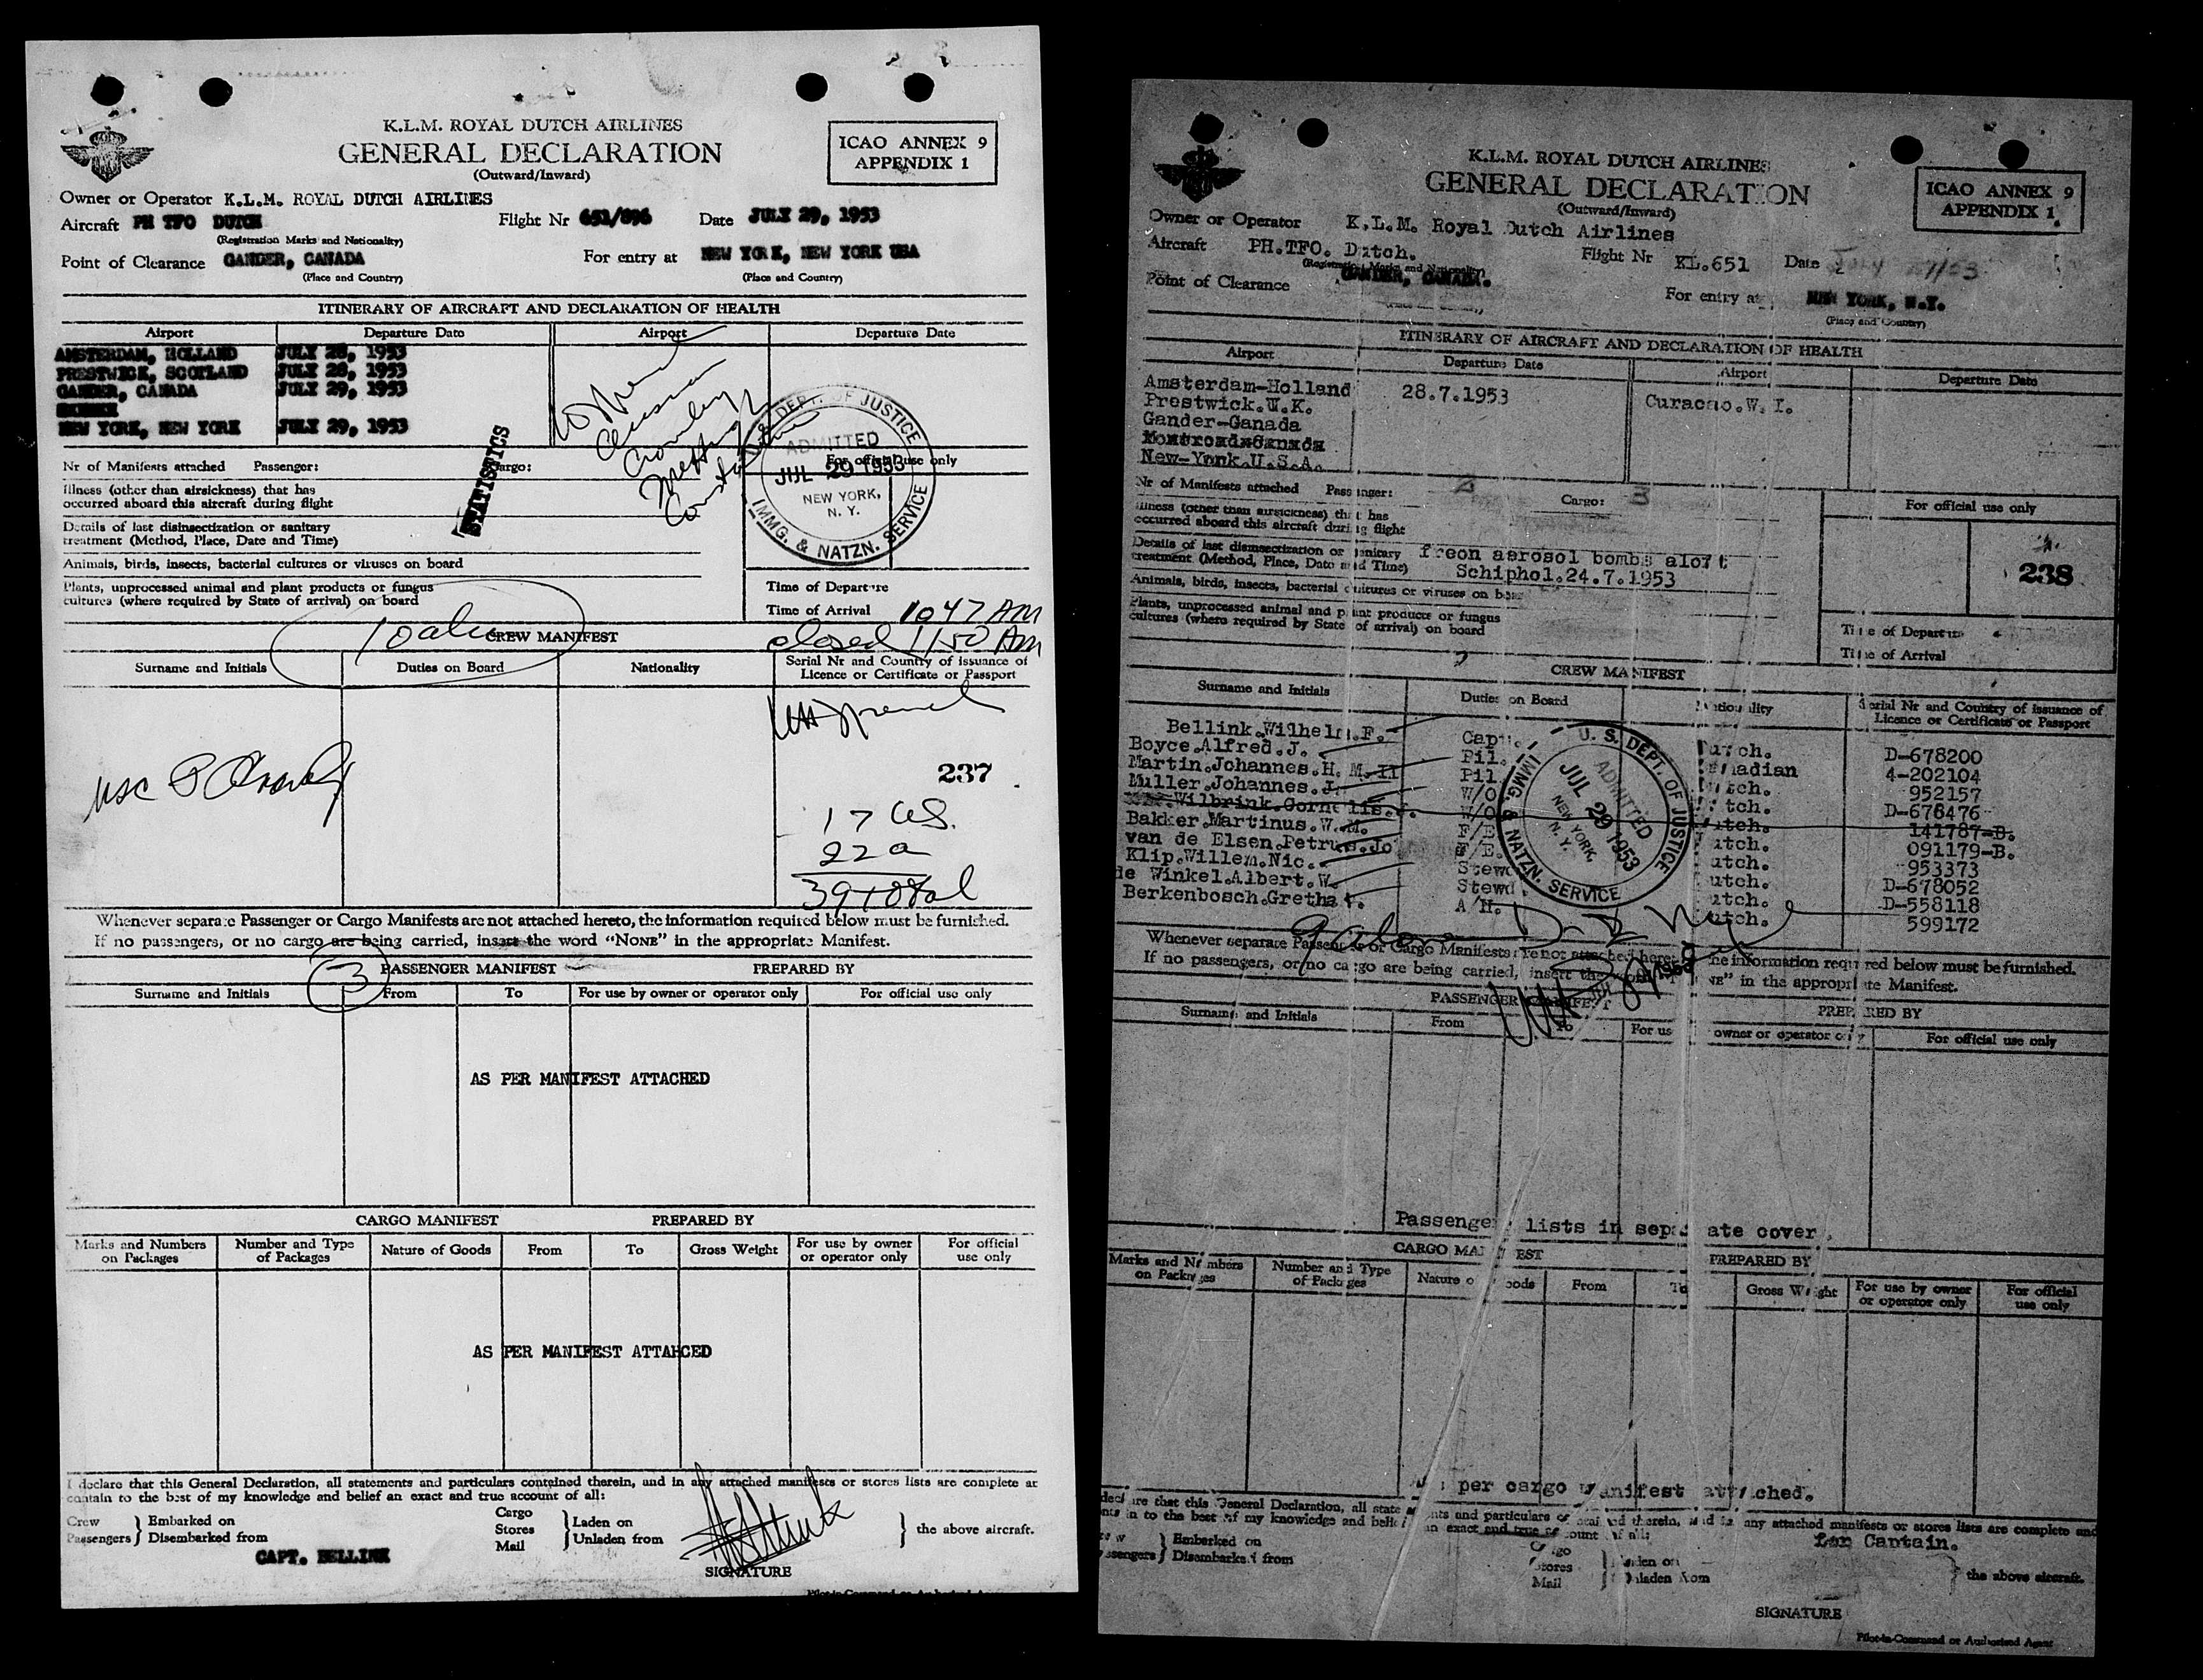 K.L.M. ROYAL DUTCH AIRLINES
GENERAL DECLARATION
(Outward/Inward)
ICAO ANNEX 9
APPENDIX 1
Owner or Operator K.L.M. ROYAL DUTCH AIRLINES
Aircraft PH TFO DUTCH Flight Nr 651/896 Date JULY 29, 1953
(Registration Marks and Nationality)
Point of Clearance GANDER, CANADA For entry at NEW YORK, NEW YORK USA
(Place and Country) (Place and Country)
ITINERARY OF AIRCRAFT AND DECLARATION OF HEALTH
Airport Departure Date Airport Departure Date
AMSTERDAM, HOLLAND JULY 28, 1953
PRESTWICK, SCOTLAND JULY 28, 1953
GANDER, CANADA JULY 29, 1953
NEW YORK, NEW YORK JULY 29, 1953
STATISTICS
U.S. DEPT. OF JUSTICE
ADMITTED
JUL 29 1953
NEW YORK,
N. Y.
IMMG. & NATZN. SERVICE
Nr of Manifests attached Passenger: Cargo: For official use only
Illness (other than airsickness) that has
occurred aboard this aircraft during flight
Details of last disinsectization or sanitary
treatment (Method, Place, Date and Time)
Animals, birds, insects, bacterial cultures or viruses on board
Plants, unprocessed animal and plant products or fungus
cultures (where required by State of arrival) on board
Time of Departure
Time of Arrival 1047 AM
closed 1150 AM
CREW MANIFEST
Surname and Initials Duties on Board Nationality Serial Nr and Country of issuance of
Licence or Certificate or Passport
237
17 US.
22a
39 total
Whenever separate Passenger or Cargo Manifests are not attached hereto, the information required below must be furnished.
If no passengers, or no cargo are being carried, insert the word "NONE" in the appropriate Manifest.
3 PASSENGER MANIFEST PREPARED BY
Surname and Initials From To For use by owner or operator only For official use only
AS PER MANIFEST ATTACHED
CARGO MANIFEST PREPARED BY
Marks and Numbers on Packages Number and Type of Packages Nature of Goods From To Gross Weight For use by owner or operator only For official use only
AS PER MANIFEST ATTAHCED
I declare that this General Declaration, all statements and particulars contained therein, and in any attached manifests or stores lists are complete ar
contain to the best of my knowledge and belief an exact and true account of all:
Crew Passengers } Embarked on Disembarked from Cargo Stores Mail } Laden on Unladen from } the above aircraft.
CAPT. BELLINK
SIGNATURE
K.L.M. ROYAL DUTCH AIRLINES
GENERAL DECLARATION
(Outward/Inward)
ICAO ANNEX 9
APPENDIX 1
Owner or Operator K.L.M. Royal Dutch Airlines
Aircraft PH.TFO. Dutch. Flight Nr KL.651 Date
(Registration Marks and Nationality)
Point of Clearance GANDER, CANADA. For entry at NEW YORK, N.Y.
(Place and Country)
ITINERARY OF AIRCRAFT AND DECLARATION OF HEALTH
Airport Departure Date Airport Departure Date
Amsterdam-Holland 28.7.1953 Curacao.W.I.
Prestwick.U.K.
Gander-Canada
New-York.U.S.A.
Nr of Manifests attached Passenger: Cargo: 3 For official use only
Illness (other than airsickness) that has
occurred aboard this aircraft during flight
Details of last disinsectization or sanitary freon aerosol bombs aloft
treatment (Method, Place, Date and Time) Schiphol.24.7.1953
238
Animals, birds, insects, bacterial cultures or viruses on board
Plants, unprocessed animal and plant products or fungus
cultures (where required by State of arrival) on board
Time of Departure
Time of Arrival
CREW MANIFEST
Surname and Initials Duties on Board Nationality Serial Nr and Country of issuance of
Licence or Certificate or Passport
Bellink.Wilhelm.F. Capt. Dutch. D-678200
Boyce.Alfred.J. Pil. Canadian 4-202104
Martin.Johannes.H. M. Pil. Dutch. 952157
Muller.Johannes.J. W/O Dutch. D-678476
Wilbrink.Cornelis.J. W/O Dutch. 141787-B.
Bakker.Martinus.W.M. F/E. Dutch. 091179-B.
van de Elsen.Petrus.Jo F/E. Dutch. 953373
Klip.Willem.Nic. Stewd. Dutch. D-678052
de Winkel.Albert.W. Stewd. Dutch. D-558118
Berkenbosch.Gretha. A/H. Dutch. 599172
U. S. DEPT. OF JUSTICE
ADMITTED
JUL 29 1953
NEW YORK,
N. Y.
IMMG. & NATZN. SERVICE
Whenever separate Passenger or Cargo Manifests are not attached hereto, the information required below must be furnished.
If no passengers, or no cargo are being carried, insert the word "NONE" in the appropriate Manifest.
PASSENGER MANIFEST PREPARED BY
Surname and Initials From To For use owner or operator only For official use only
Passenger lists in separate cover.
CARGO MANIFEST PREPARED BY
Marks and Numbers on Packages Number and Type of Packages Nature of Goods From To Gross Weight For use by owner or operator only For official use only
As per cargo manifest attached.
declare that this General Declaration, all statements and particulars contained therein, and in any attached manifests or stores lists are complete and
in to the best of my knowledge and belief an exact and true account of all:
Crew Passengers } Embarked on Disembarked from Cargo Stores Mail } Laden on Unladen from } the above aircraft.
Captain.
SIGNATURE
Pilot-in-Command or Authorised Agent